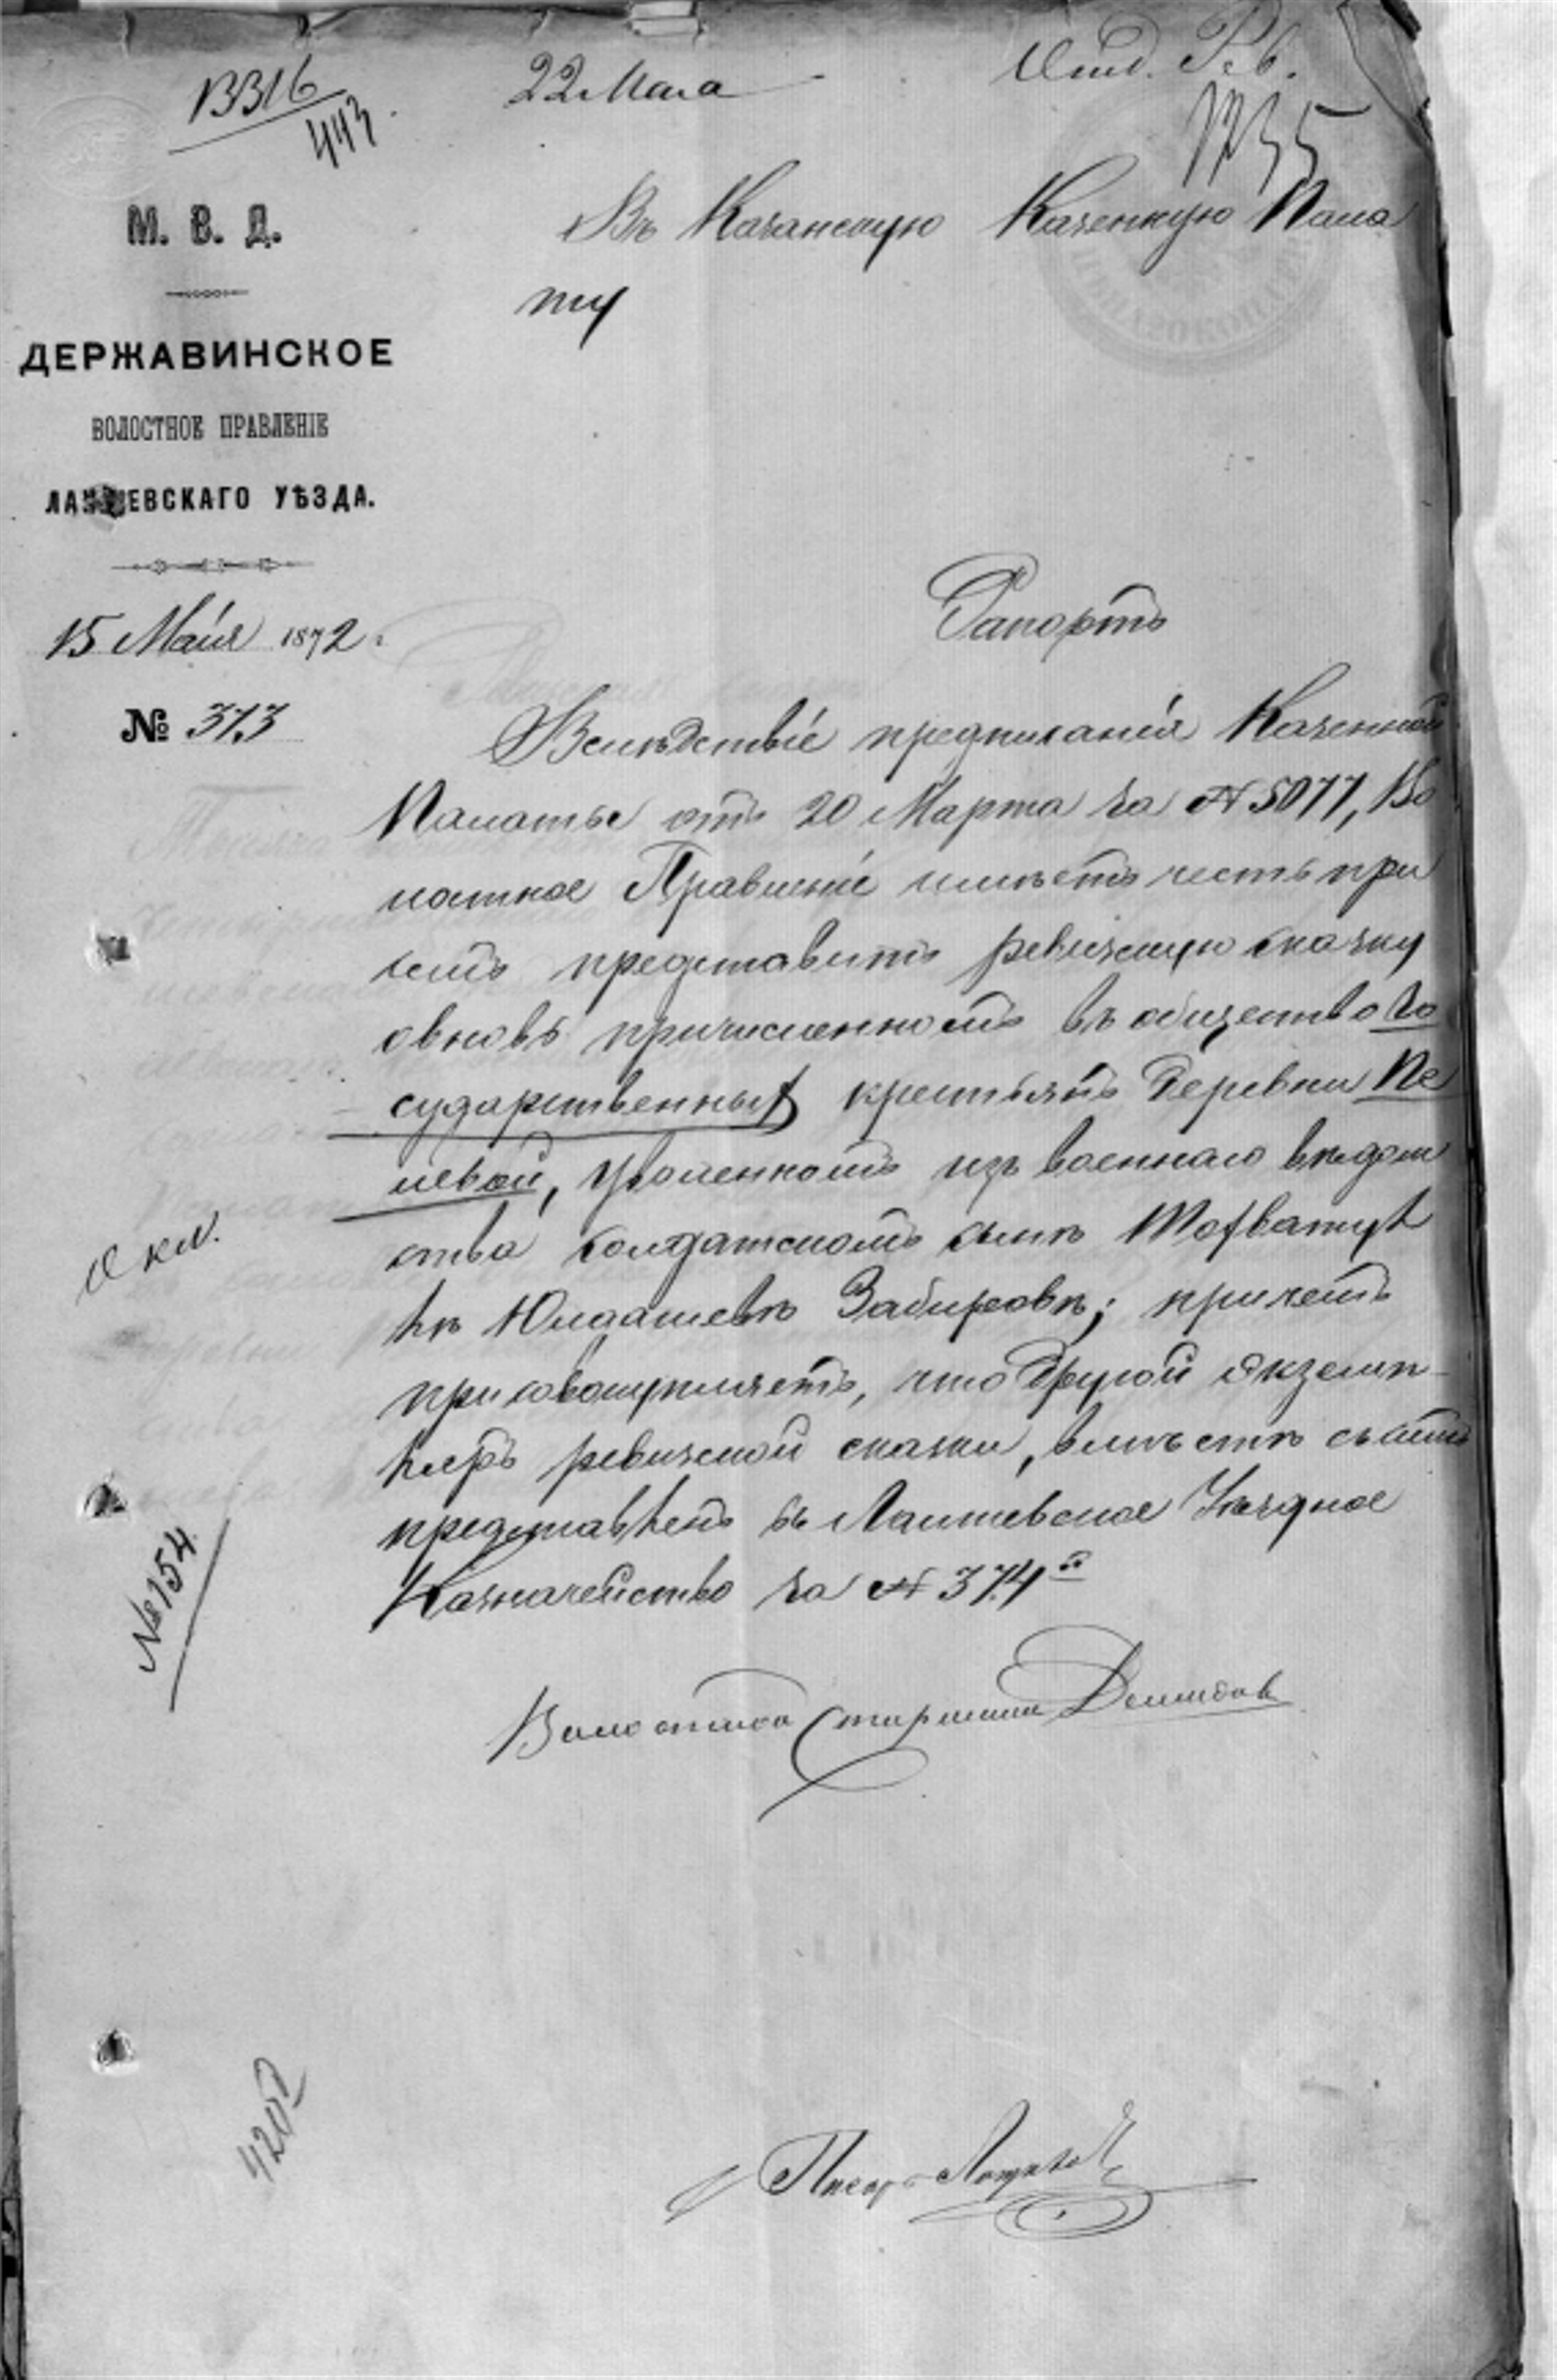 13316
443
22 Мая
Отд. Рев.
1735
М. В. Д.
ДЕРЖАВИНСКОЕ
ВОЛОСТНОЕ ПРАВЛЕНІЕ
ЛАИШЕВСКАГО УѢЗДА.
15 Маія 1872 г.
№ 373
Въ Казанскую Казенную Пала
ту
Рапортъ
Вслѣдствіе предписанія Казенной
Палаты отъ 20 Марта за № 5077, Во
лостное Правленіе имѣетъ честь при
семъ представить ревизскую сказку
о вновь причисленномъ въ общество Го
сударственныхъ крестьянъ деревни
уволенномъ изъ военнаго вѣдом
ства солдатскомъ сынѣ
Юлдашевѣ Забировѣ; причемъ
присовокупляетъ, что другой экземп-
ляръ ревизской сказки, вмѣстѣ съ симъ
представленъ въ Лаишевское Уѣздное
Казначейство за № 374й
Волостной Старшина Демидовъ
Писарь
О кл.
№ 154